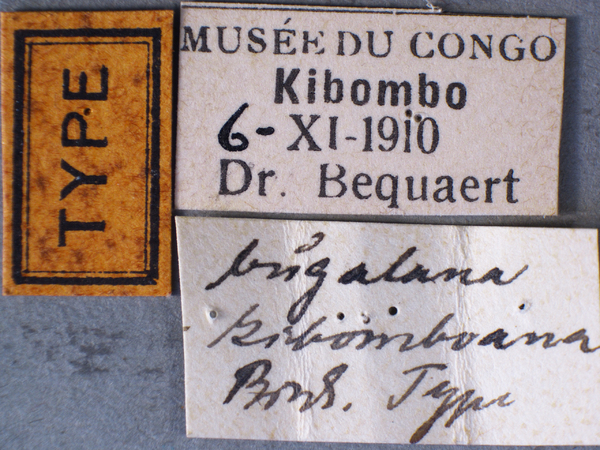 TYPE
MUSÉE DU CONGO
Kibombo
6-XI-1910
Dr. Bequaert
bugalana
kibomboana
Type